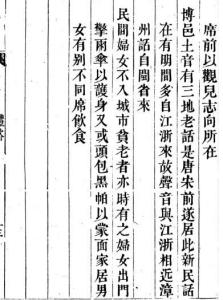 席前以觀兒志向所在
博邑土音有三地老話是唐宋前遂居此新民話
在有明間多自江浙來故聲音與江浙相近漳
州話自閩省來
民間婦女不入城市貧老者亦時有之婦女出門
擎兩傘以護身又或頭包黑帕以蒙面家居男
女有别不同席飲食